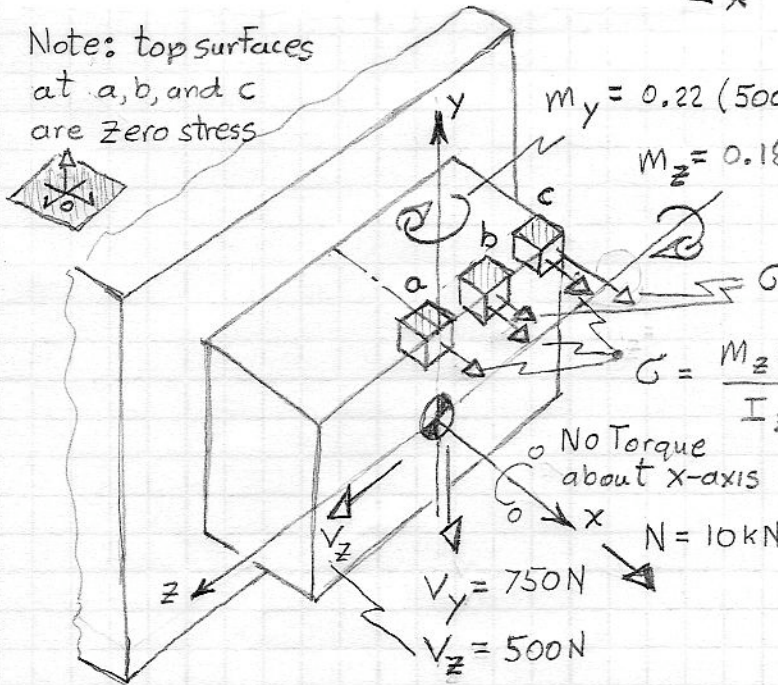 x
Note: top surfaces
at a, b, and c
are zero stress
y
m_y = 0.22 (500
m_z = 0.18
c
b
a
σ
σ = M_z
I
No Torque
about x-axis
o
o
o
x
N = 10kN
V_z
z
V_y = 750N
V_z = 500N